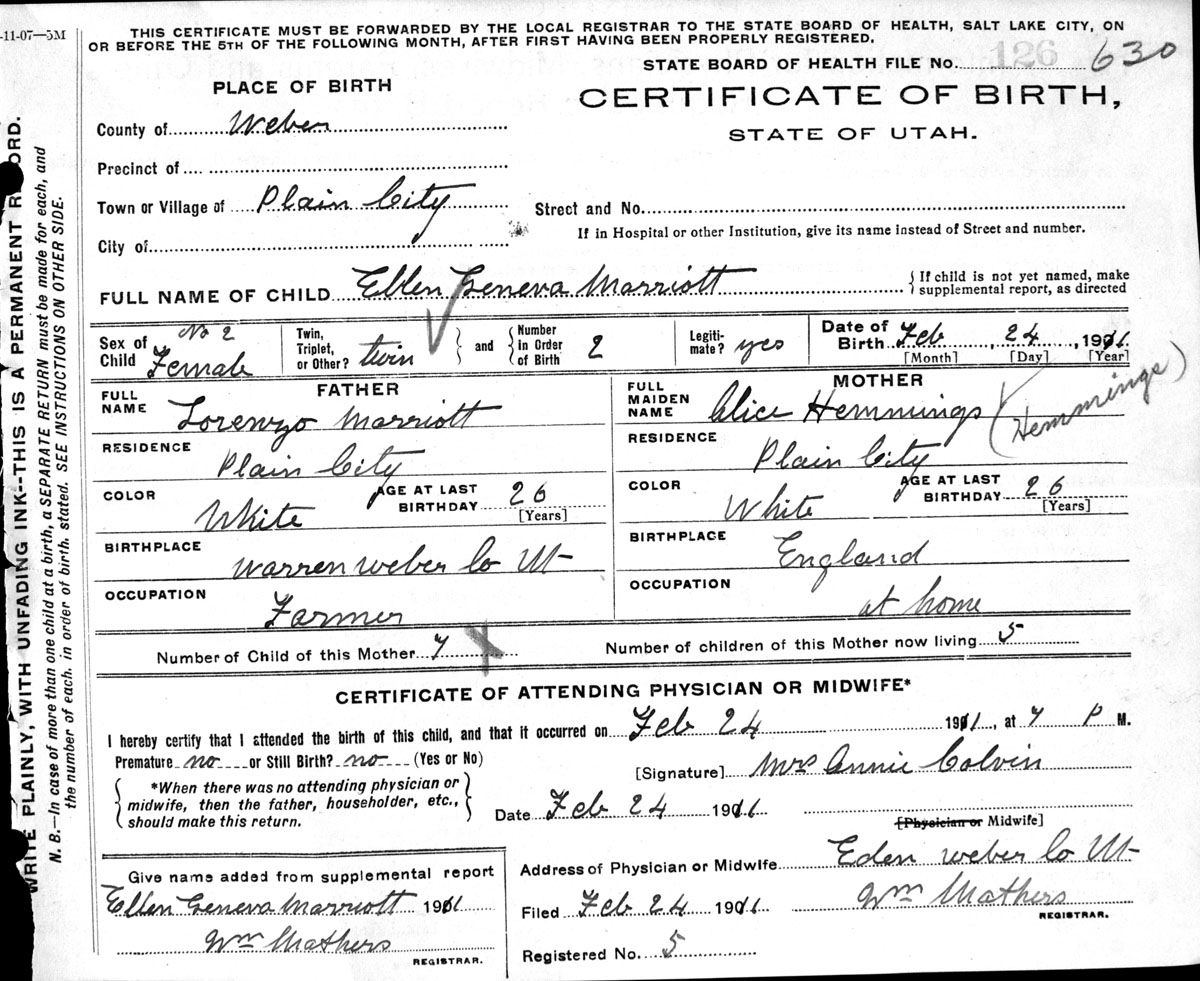 -11-07—5M
THIS CERTIFICATE MUST BE FORWARDED BY THE LOCAL REGISTRAR TO THE STATE BOARD OF HEALTH, SALT LAKE CITY, ON
OR BEFORE THE 5TH OF THE FOLLOWING MONTH, AFTER FIRST HAVING BEEN PROPERLY REGISTERED.
STATE BOARD OF HEALTH FILE No. 126 630
PLACE OF BIRTH
CERTIFICATE OF BIRTH,
STATE OF UTAH.
County of Weber
Precinct of
Town or Village of Plain City
Street and No.
City of
If in Hospital or other Institution, give its name instead of Street and number.
FULL NAME OF CHILD Ellen Geneva Marriott
{If child is not yet named, make
supplemental report, as directed
Sex of Child No 2 Female
Twin, Triplet, or Other? twin
} and {
Number in Order of Birth 2
Legiti-mate? yes
Date of Birth Feb, 24, 1911
[Month] [Day] [Year]
FATHER
FULL NAME Lorenzo Marriott
RESIDENCE Plain City
COLOR White
AGE AT LAST BIRTHDAY 26
[Years]
BIRTHPLACE Warren Weber Co Ut
OCCUPATION Farmer
MOTHER
FULL MAIDEN NAME Alice Hemmings (Hemmings)
RESIDENCE Plain City
COLOR White
AGE AT LAST BIRTHDAY 26
[Years]
BIRTHPLACE England
OCCUPATION at home
Number of Child of this Mother 7 X
Number of children of this Mother now living 5
CERTIFICATE OF ATTENDING PHYSICIAN OR MIDWIFE*
I hereby certify that I attended the birth of this child, and that it occurred on Feb 24 1911, at 7 P M.
Premature no or Still Birth? no (Yes or No)
[Signature] Mrs Annie Colvin
{*When there was no attending physician or
midwife, then the father, householder, etc.,
should make this return.}
Date Feb 24 1911
[Physician or Midwife]
Address of Physician or Midwife Eden Weber Co Ut
Give name added from supplemental report
Ellen Geneva Marriott 1911
Wm Mathers
REGISTRAR.
Filed Feb 24 1911
Wm Mathers
REGISTRAR.
Registered No. 5
WRITE PLAINLY, WITH UNFADING INK--THIS IS A PERMANENT RECORD.
N. B.—In case of more than one child at a birth, a SEPARATE RETURN must be made for each, and
the number of each, in order of birth, stated. SEE INSTRUCTIONS ON OTHER SIDE.